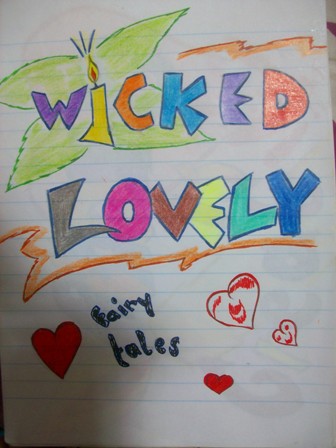 WiCKED
LOVELY
fairy
tales